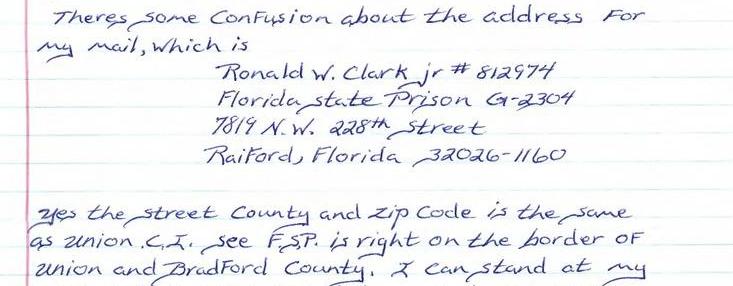 Theres some confusion about the address for
my mail, which is
Ronald W. Clark jr # 812974
Florida state Prison G-2304
7819 N.W. 228th street
Raiford, Florida 32026-1160
yes the street County and zip Code is the same
as union .C.I. see F.S.P. is right on the border of
union and Bradford County. I can stand at my